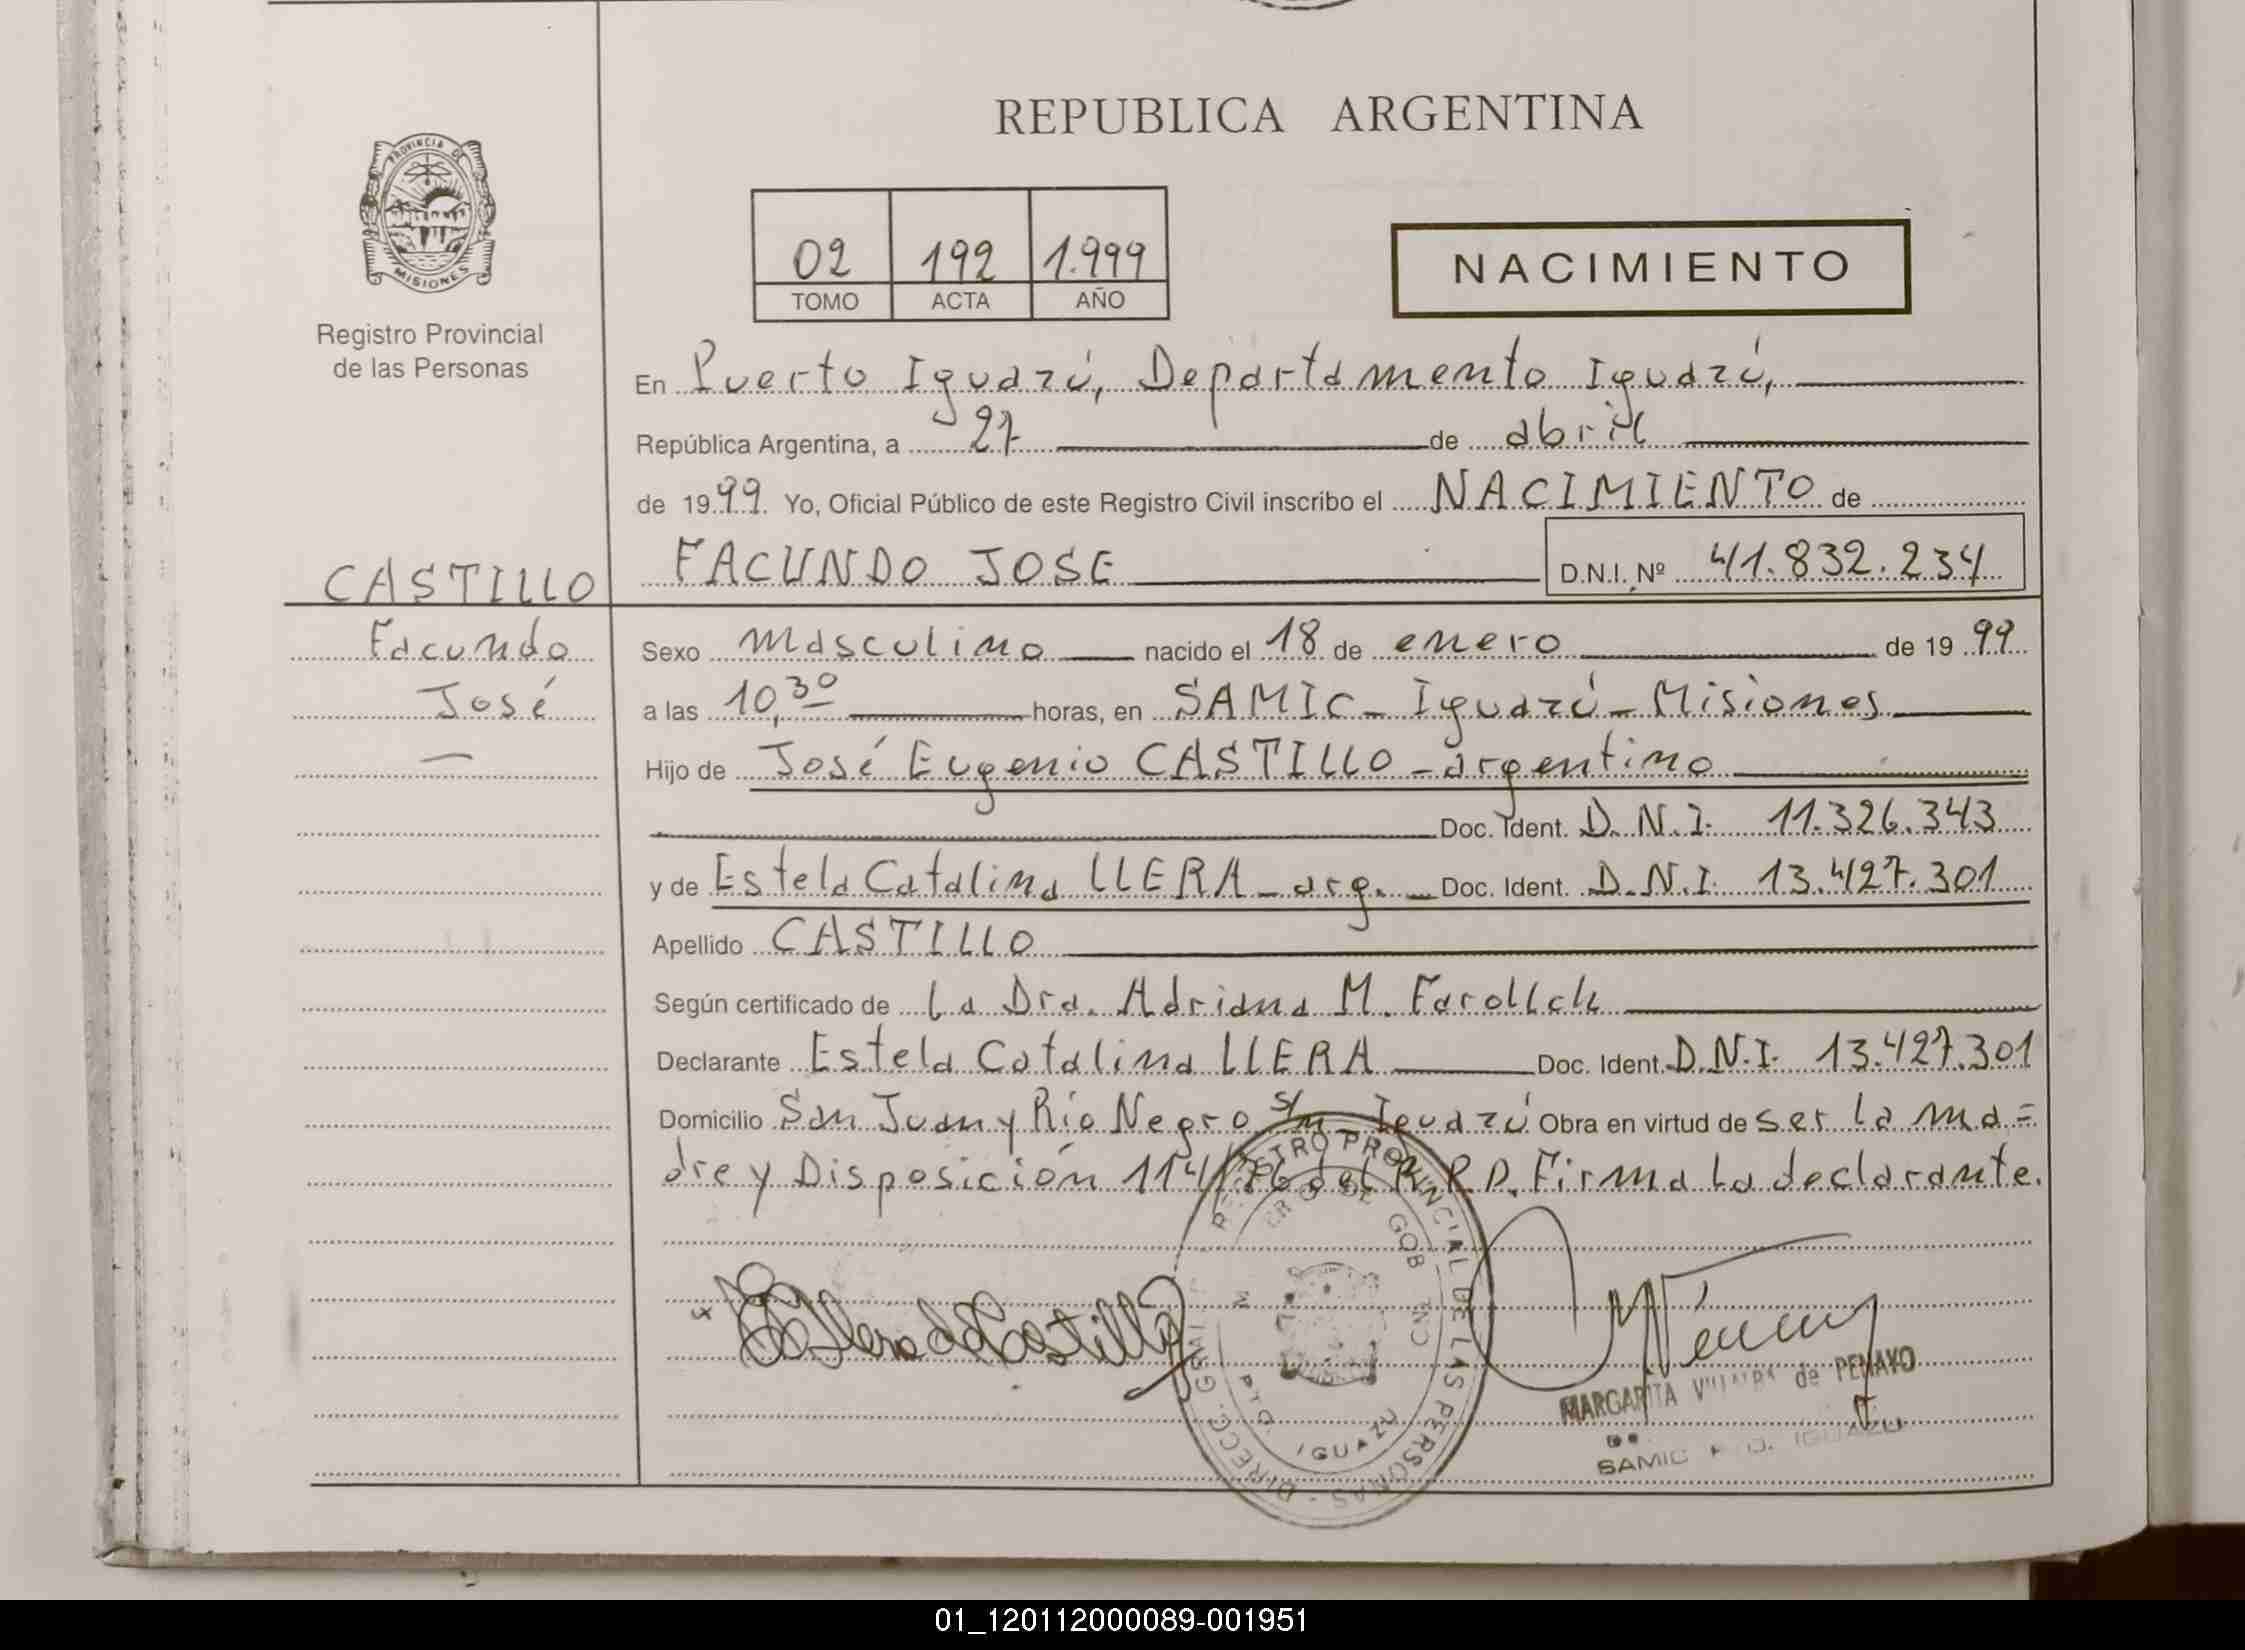 REPUBLICA ARGENTINA
PROVINCIA DE
MISIONES
Registro Provincial
de las Personas
02 192 1.999
TOMO ACTA AÑO
NACIMIENTO
En Puerto Iguazú, Departamento Iguazú,
República Argentina, a 27 de abril
de 1999 Yo, Oficial Público de este Registro Civil inscribo el NACIMIENTO de
FACUNDO JOSE D.N.I. Nº 41.832.234
CASTILLO
Facundo
José
Sexo masculino nacido el 18 de enero de 1999
a las 10,30 horas, en SAMIC - Iguazú - Misiones
Hijo de José Eugenio CASTILLO - argentino
Doc. Ident. D.N.I. 11.326.343
y de Estela Catalina LLERA - arg. Doc. Ident. D.N.I. 13.427.301
Apellido CASTILLO
Según certificado de La Dra. Adriana M.
Declarante Estela Catalina LLERA Doc. Ident. D.N.I. 13.427.301
Domicilio San Juan y Río Negro s/n Iguazú Obra en virtud de ser la ma=
dre y Disposición 114/76 del R.P.P. Firma La declarante.
E Llera de Castillo
REGISTRO PROVINCIAL DE LAS PERSONAS - DIRECC. GRAL
IGUAZU
MARGARITA VILLALBA de PENAYO
SAMIC PTO. IGUAZU
01_120112000089-001951